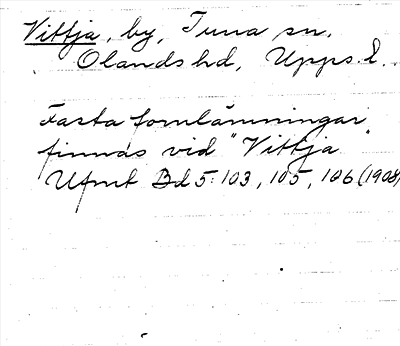 Vittja, by, Tuna sn.
Olands hd, Upps. l.
Fasta fornlämningar
finnas vid "Vittja"
Ufmt Bd 5: 103, 105, 106 (1908)